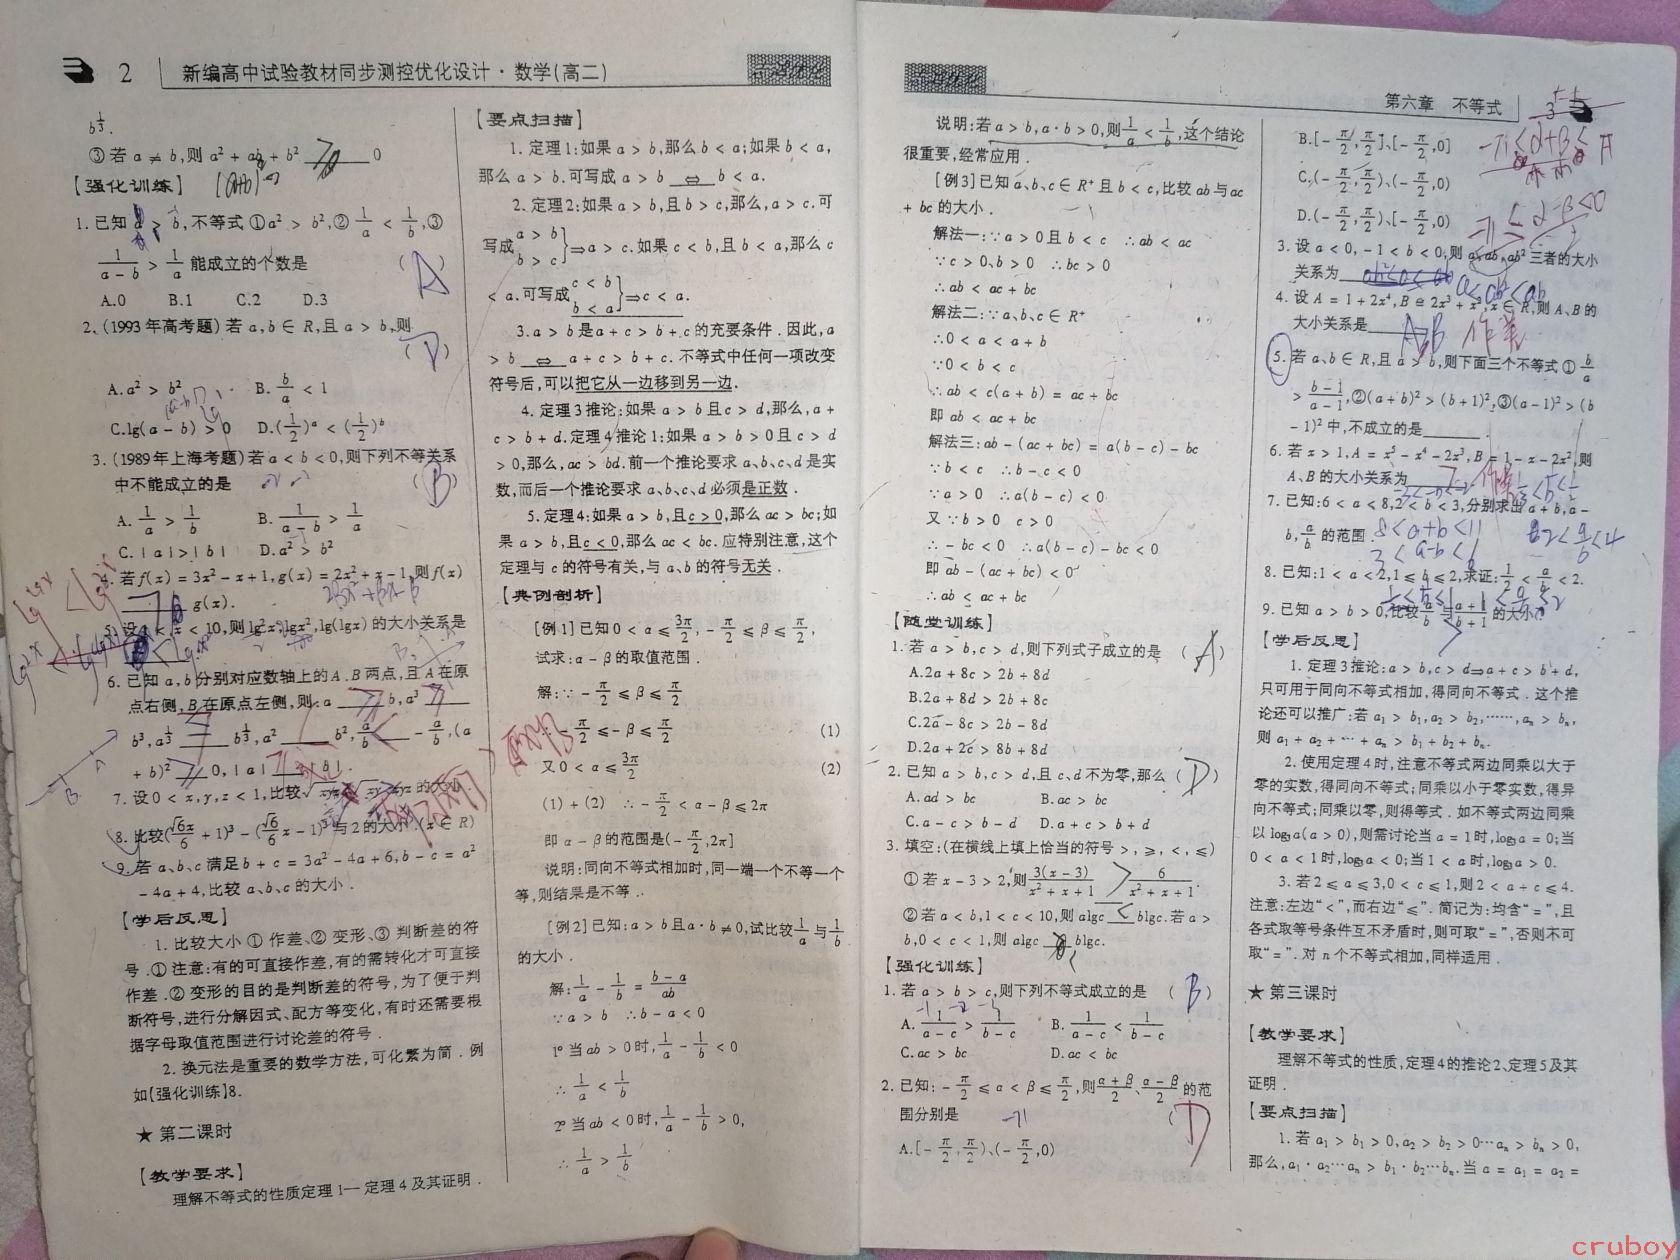 2 新编高中试验教材同步测控优化设计·数学(高二)
b^{1/3}.
③若 a ≠ b,则 a² + ab + b² ____ 0
【强化训练】
1.已知 a > b,不等式 ①a² > b²,② 1/a < 1/b,③
1/(a-b) > 1/a 能成立的个数是 ( A )
A.0 B.1 C.2 D.3
2.(1993年高考题)若 a,b ∈ R,且 a > b,则
( D )
A.a² > b² B. b/a < 1
C.lg(a - b) > 0 D.(1/2)^a < (1/2)^b
3.(1989年上海考题)若 a < b < 0,则下列不等关系
中不能成立的是 ( B )
A. 1/a > 1/b B. 1/(a-b) > 1/a
C.|a|>|b| D.a² > b²
4.若 f(x) = 3x² - x + 1,g(x) = 2x² + x - 1,则 f(x)
____ g(x).
5.设 1 < x < 10,则 lg²x,lgx²,lg(lgx)的大小关系是
6.已知 a,b 分别对应数轴上的 A、B 两点,且 A 在原
点右侧,B 在原点左侧,则:a > b,a³ >
b³,a^{1/3} ____ b^{1/3},a² ____ b²,a/b < - a/b,(a
+ b)² ____ 0,|a| ____ |b|.
7.设 0 < x,y,z < 1,比较 的大小.
8.比较(√6x/6 + 1)³ - (√6/6 x - 1)³与2的大小.(x ∈ R)
9.若 a、b、c 满足 b + c = 3a² - 4a + 6,b - c = a²
- 4a + 4,比较 a、b、c 的大小.
【学后反思】
1.比较大小 ①作差、②变形、③判断差的符
号.①注意:有的可直接作差,有的需转化才可直接
作差.②变形的目的是判断差的符号,为了便于判
断符号,进行分解因式、配方等变化,有时还需要根
据字母取值范围进行讨论差的符号.
2.换元法是重要的数学方法,可化繁为简.例
如【强化训练】8.
★ 第二课时
【教学要求】
理解不等式的性质定理1—定理4及其证明.
【要点扫描】
1.定理1:如果 a > b,那么 b < a;如果 b < a,
那么 a > b.可写成 a > b ⇔ b < a.
2.定理2:如果 a > b,且 b > c,那么,a > c.可
写成 a > b
b > c }⇒a > c.如果 c < b,且 b < a,那么 c
< a.可写成 c < b
b < a }⇒c < a.
3.a > b 是 a + c > b + c 的充要条件.因此,a
> b ⇔ a + c > b + c.不等式中任何一项改变
符号后,可以把它从一边移到另一边.
4.定理3推论:如果 a > b 且 c > d,那么,a +
c > b + d.定理4推论1:如果 a > b > 0 且 c > d
> 0,那么,ac > bd.前一个推论要求 a、b、c、d 是实
数,而后一个推论要求 a、b、c、d 必须是正数.
5.定理4:如果 a > b,且 c > 0,那么 ac > bc;如
果 a > b,且 c < 0,那么 ac < bc.应特别注意,这个
定理与 c 的符号有关,与 a、b 的符号无关.
【典例剖析】
[例1]已知 0 < α ≤ 3π/2,- π/2 ≤ β ≤ π/2,
试求:α - β 的取值范围.
解:∵ - π/2 ≤ β ≤ π/2
π/2 ≤ -β ≤ π/2 (1)
又 0 < α ≤ 3π/2 (2)
(1) + (2) ∴ - π/2 < α - β ≤ 2π
即 α - β 的范围是(- π/2,2π]
说明:同向不等式相加时,同一端一个不等一个
等,则结果是不等.
[例2]已知:a > b 且 a·b ≠ 0,试比较 1/a 与 1/b
的大小.
解:1/a - 1/b = (b - a)/ab
∵ a > b ∴ b - a < 0
1° 当 ab > 0 时,1/a - 1/b < 0
∴ 1/a < 1/b
2° 当 ab < 0 时,1/a - 1/b > 0,
∴ 1/a > 1/b
第六章 不等式 3
说明:若 a > b,a·b > 0,则 1/a < 1/b,这个结论
很重要,经常应用.
[例3]已知 a、b、c ∈ R⁺ 且 b < c,比较 ab 与 ac
+ bc 的大小.
解法一:∵ a > 0 且 b < c ∴ ab < ac
∵ c > 0、b > 0 ∴ bc > 0
∴ ab < ac + bc
解法二:∵ a、b、c ∈ R⁺
∴ 0 < a < a + b
∵ 0 < b < c
∴ ab < c(a + b) = ac + bc
即 ab < ac + bc
解法三:ab - (ac + bc) = a(b - c) - bc
∵ b < c ∴ b - c < 0
∵ a > 0 ∴ a(b - c) < 0
又 ∵ b > 0 c > 0
∴ - bc < 0 ∴ a(b - c) - bc < 0
即 ab - (ac + bc) < 0
∴ ab ≤ ac + bc
【随堂训练】
1.若 a > b,c > d,则下列式子成立的是 ( A )
A.2a + 8c > 2b + 8d
B.2a + 8d > 2b + 8c
C.2a - 8c > 2b - 8d
D.2a + 2c > 8b + 8d
2.已知 a > b,c > d,且 c、d 不为零,那么 ( D )
A.ad > bc B.ac > bc
C.a - c > b - d D.a + c > b + d
3.填空:(在横线上填上恰当的符号 >,≥,<,≤)
①若 x - 3 > 2,则 3(x - 3)/(x² + x + 1) > 6/(x² + x + 1).
②若 a < b,1 < c < 10,则 algc < blgc.若 a >
b,0 < c < 1,则 algc ____ blgc.
【强化训练】
1.若 a > b > c,则下列不等式成立的是 ( B )
A. 1/(a-c) > 1/(b-c) B. 1/(a-c) < 1/(b-c)
C.ac > bc D.ac < bc
2.已知:- π/2 ≤ α < β ≤ π/2,则 (α + β)/2、(α - β)/2 的范
围分别是 ( D )
A.[- π/2,π/2)、(- π/2,0)
B.[- π/2,π/2]、[- π/2,0]
C.(- π/2,π/2)、(- π/2,0)
D.(- π/2,π/2)、[- π/2,0)
3.设 a < 0,- 1 < b < 0,则 a,ab,ab² 三者的大小
关系为 a < ab² < ab
4.设 A = 1 + 2x⁴,B = 2x³ + x²,x ∈ R,则 A、B 的
大小关系是 A≥B 作差
5.若 a、b ∈ R,且 a > b,则下面三个不等式 ① b/a
> (b - 1)/(a - 1),②(a + b)² > (b + 1)²,③(a - 1)² > (b
- 1)² 中,不成立的是____.
6.若 x > 1,A = x⁵ - x⁴ - 2x³,B = 1 - x - 2x²,则
A、B 的大小关系为 > 作差
7.已知:6 < a < 8,2 < b < 3,分别求出 a + b,a -
b,a/b 的范围. 8 < a+b < 11 2 < a/b < 4
3 < a-b < 6
8.已知:1 < a < 2,1 ≤ b ≤ 2,求证:1/2 < a/b < 2.
9.已知 a > b > 0,比较 a/b 与 (a + 1)/(b + 1) 的大小.
【学后反思】
1.定理3推论:a > b,c > d⇒a + c > b + d,
只可用于同向不等式相加,得同向不等式.这个推
论还可以推广:若 a₁ > b₁,a₂ > b₂,……,aₙ > bₙ,
则 a₁ + a₂ + … + aₙ > b₁ + b₂ + bₙ.
2.使用定理4时,注意不等式两边同乘以大于
零的实数,得同向不等式;同乘以小于零实数,得异
向不等式;同乘以零,则得等式.如不等式两边同乘
以 log₃a(a > 0),则需讨论当 a = 1 时,log₃a = 0;当
0 < a < 1 时,log₃a < 0;当 1 < a 时,log₃a > 0.
3.若 2 ≤ a ≤ 3,0 < c ≤ 1,则 2 < a + c ≤ 4.
注意:左边“<”,而右边“≤”.简记为:均含“=”,且
各式取等号条件互不矛盾时,则可取“=”,否则不可
取“=”.对 n 个不等式相加,同样适用.
★ 第三课时
【教学要求】
理解不等式的性质,定理4的推论2、定理5及其
证明.
【要点扫描】
1.若 a₁ > b₁ > 0,a₂ > b₂ > 0…aₙ > bₙ > 0,
那么,a₁·a₂…aₙ > b₁·b₂…bₙ.当 a = a₁ = a₂ =
cruboy